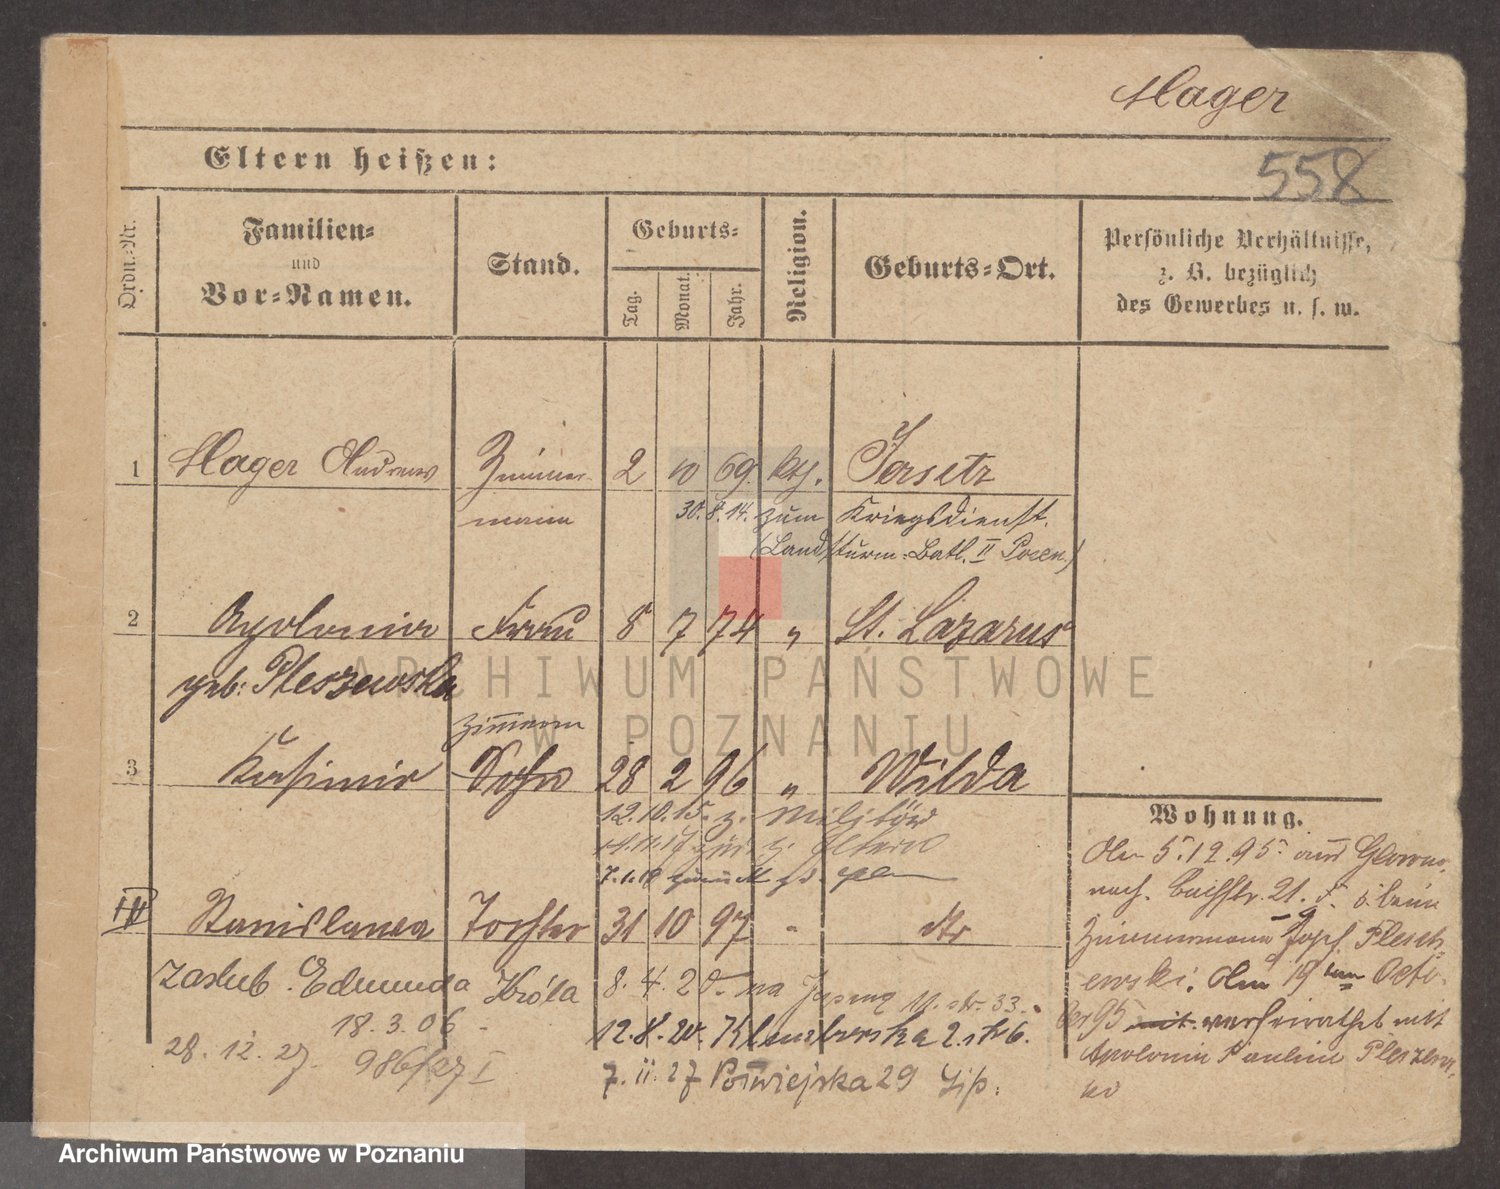 Hager
558
Eltern heißen:
Ordn.-Nr.
Familien-
und
Vor-Namen.
Stand.
Geburts-
Tag.
Monat.
Jahr.
Religion.
Geburts-Ort.
Persönliche Verhältnisse,
z. B. bezüglich
des Gewerbes u. s. w.
1 Hager Andreas Zimmer- 2 10 69. kth. Jersetz
mann 30. 8. 14. zum Kriegsdienst.
(Landsturm-Batl. II Posen.)
2 Apolonia Frau 8 7 74 " St. Lazarus
geb. Pleszewska
Zimmerm
3 Kasimir Sohn 28 2 96 " Wilda
12.10.15. z. Militär
zur z. Eltern
7.1.19 zurück
III Stanislawa Tochter 31 10 97 " dto
zaślub. Edmunda Króla 8. 4. 20. na 11. str. 33.
18. 3. 06 12. 8. 20. 2. str 6.
28. 12. 27. 986/27 I
7. 11. 27 Poświejska 29
Wohnung.
Am 5.12.95. aus Glowno
nach Bachstr. 21. b. beim
Zimmermann Josef Plesch-
ewski. Am 19ten Octo-
ber 95 mit verheirathet mit
Apolonia Paulina Pleszews-
ki
ARCHIWUM PAŃSTWOWE
W POZNANIU
Archiwum Państwowe w Poznaniu